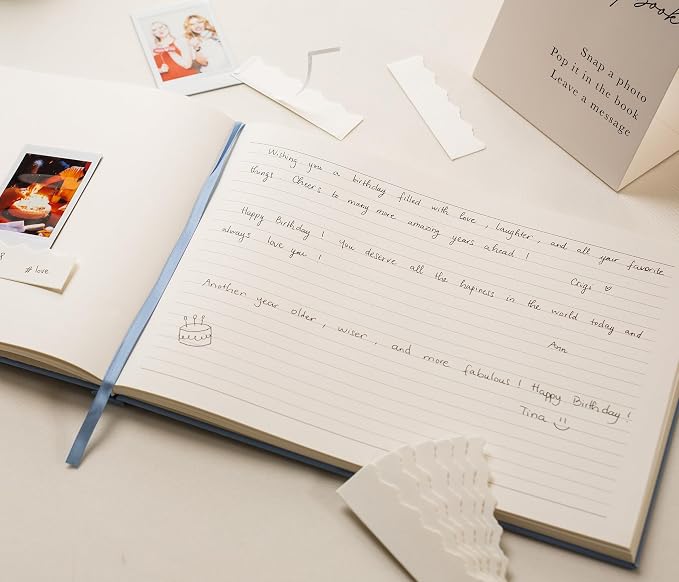 Snap a photo
Pop it in the book
Leave a message
#love
Wishing you a birthday filled with love, laughter, and all your favorite
things. Cheers to many more amazing years ahead!
Happy Birthday! You deserve all the hapiness in the world today and
always love you!
Ann
Another year older, wiser, and more fabulous! Happy Birthday!
Tina